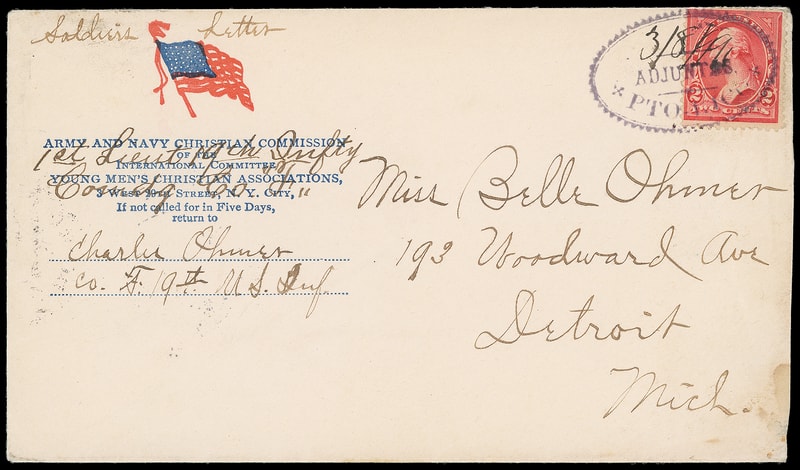 Soldiers Letter
ARMY AND NAVY CHRISTIAN COMMISSION
OF THE
1st Lieut 19th Infty
INTERNATIONAL COMMITTEE
YOUNG MEN'S CHRISTIAN ASSOCIATIONS,
Comdg Co "F"
3 WEST 29TH STREET, N. Y. CITY,
If not called for in Five Days,
return to
Charlie Ohmer
Co. F. 19th U.S. Inf.
3/8
ADJUNTAS.
PTO.
2
Miss Belle Ohmer
193 Woodward Ave
Detroit
Mich.